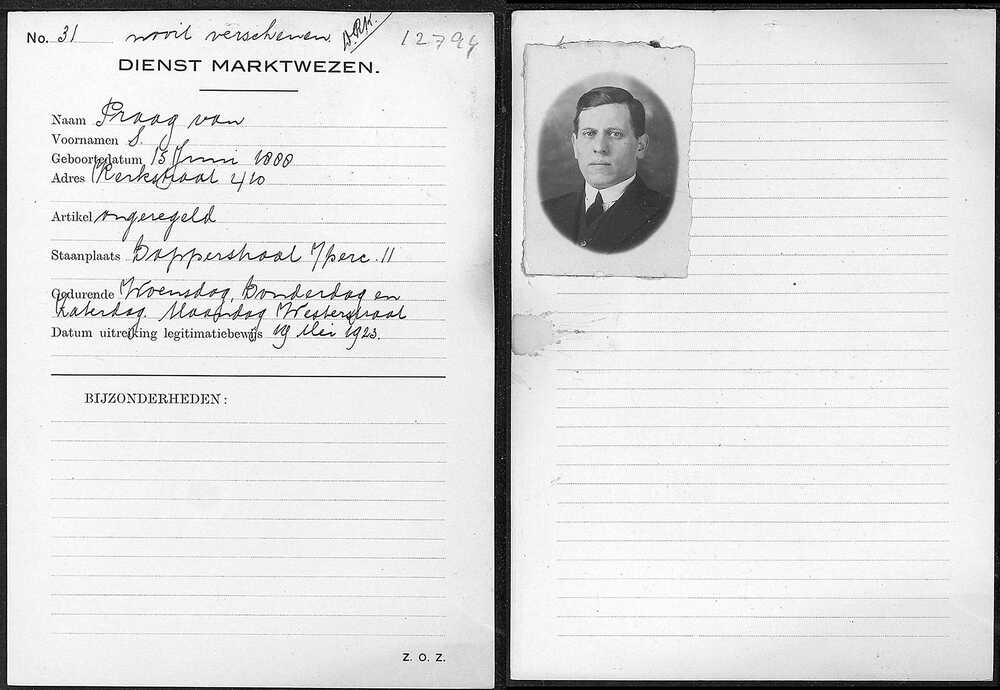 No. 31 nooit verschenen. 12794
DIENST MARKTWEZEN.
Naam Praag van
Voornamen S.
Geboortedatum 15 Juni 1888
Adres Kerkstraat 410
Artikel ongeregeld
Staanplaats Dapperstraat Yperc. 11
Gedurende Woensdag, Donderdag en
Zaterdag. Maandag Westerstraat
Datum uitreiking legitimatiebewijs 19 Mei 1923.
BIJZONDERHEDEN:
Z. O. Z.